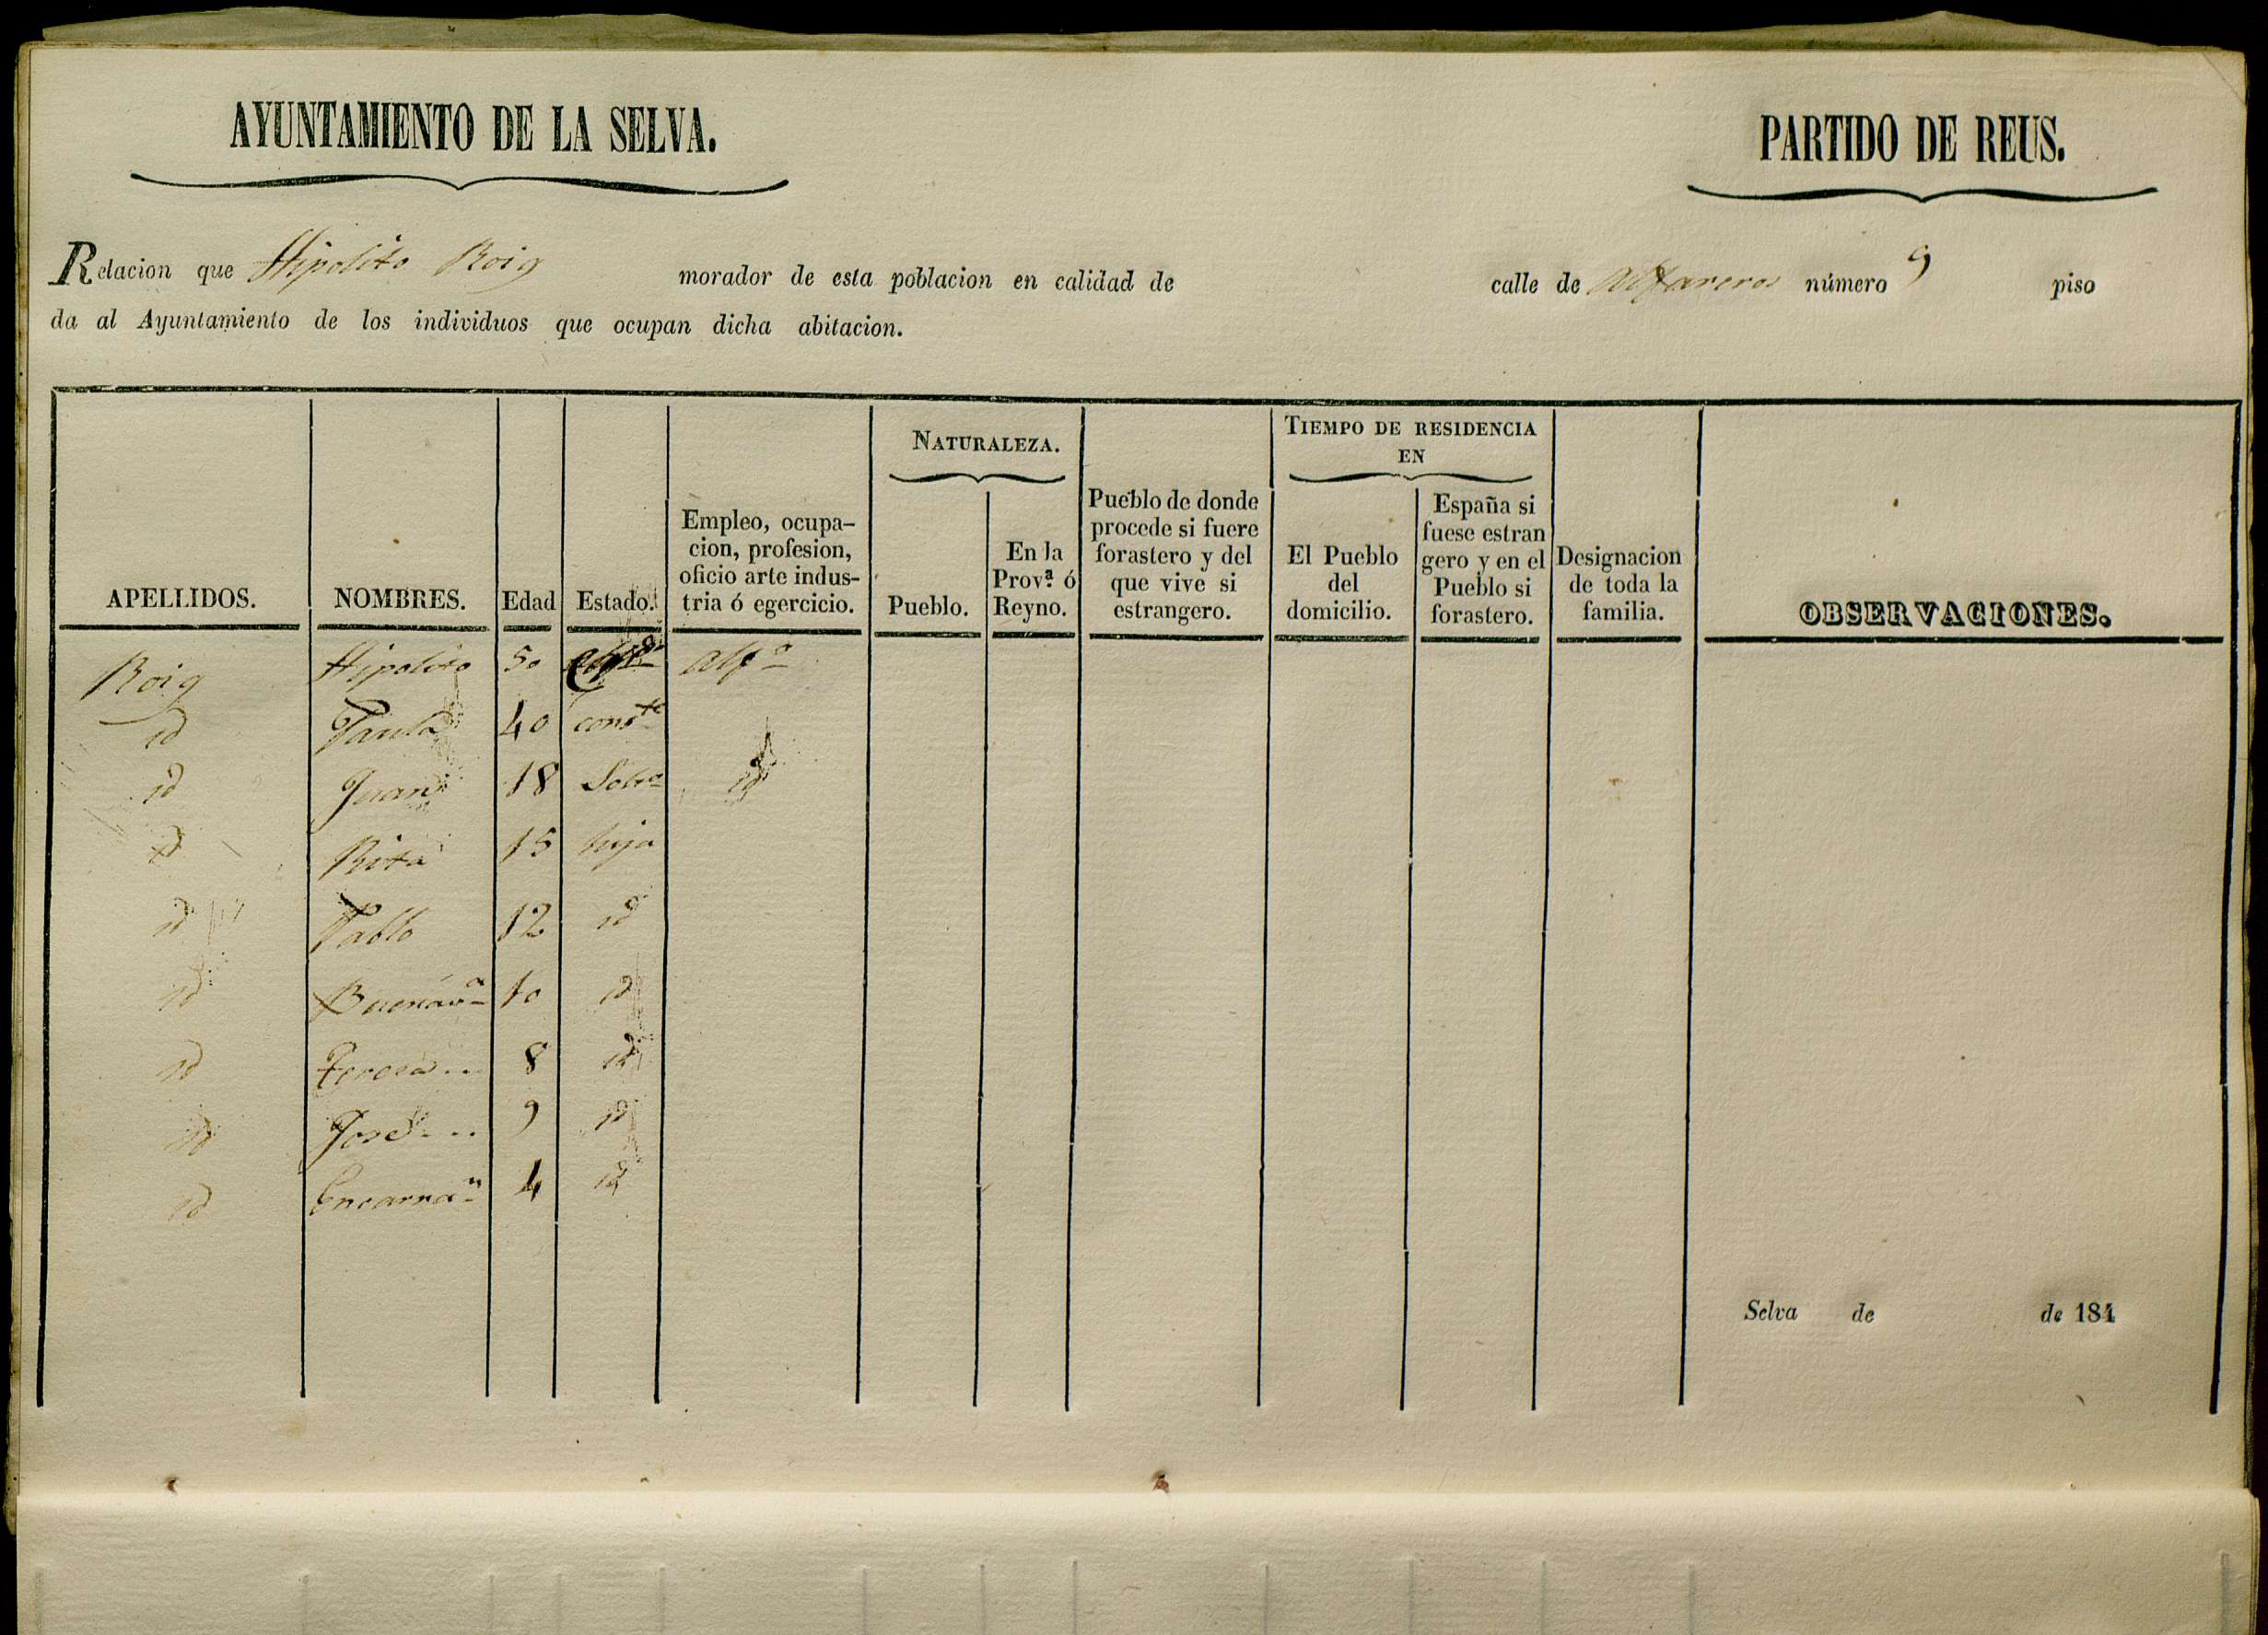 AYUNTAMIENTO DE LA SELVA.
PARTIDO DE REUS.
Relacion que Hipolito Roig morador de esta poblacion en calidad de calle de Alfareros número 9 piso
da al Ayuntamiento de los individuos que ocupan dicha abitacion.
NATURALEZA.
TIEMPO DE RESIDENCIA
EN
APELLIDOS.
NOMBRES.
Edad
Estado.
Empleo, ocupa-
cion, profesion,
oficio arte indus-
tria ó egercicio.
Pueblo.
En la
Prov.ª ó
Reyno.
Pueblo de donde
procede si fuere
forastero y del
que vive si
estrangero.
El Pueblo
del
domicilio.
España si
fuese estran
gero y en el
Pueblo si
forastero.
Designacion
de toda la
familia.
OBSERVACIONES.
Roig Hipolito 50 Alfº
id Paula 40 conste
id Juan 18 Soltº id
id Rita 15 hija
id Pablo 12 id
id Buenavª 10 id
id Teresa... 8 id
id José... 9 id
id Encarnaⁿ 4 id
Selva de de 184